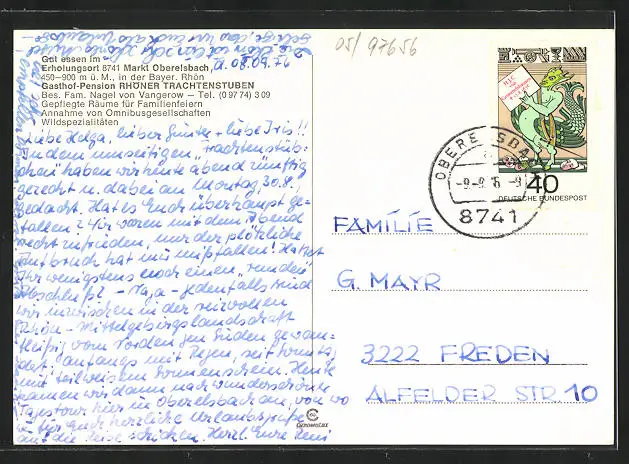 05/97656
Gut essen im
Erholungsort 8741 Markt Oberelsbach,
d. 08.09.76
450–900 m ü. M., in der Bayer. Rhön
Gasthof-Pension RHÖNER TRACHTENSTUBEN
Bes. Fam. Nagel von Vangerow – Tel. (0 97 74) 3 09
Gepflegte Räume für Familienfeiern
Annahme von Omnibusgesellschaften
Wildspezialitäten
Liebe Helga, lieber Günter + liebe Iris!!
In dem umseitigen „Trachtenstüb-
chen" haben wir heute abend zünftig
gezecht u. dabei an Montag, 30.8.,
gedacht. Hat es Euch überhaupt ge-
fallen? Wir waren mit dem Abend
recht zufrieden, nur der plötzliche
Aufbruch hat mir mißfallen! Hattet
Ihr wenigstens noch einen „runden"
Abschluß? – Naja – jedenfalls sind
wir inzwischen in der reizvollen
Rhön – Mittelgebirgslandschaft
fleißig vom Norden zum Süden gewan-
dert, anfangs mit Regen, seit Sonntag
mit teilweisem Sonnenschein. Heute
kamen wir dann nach wunderschöner
Tagestour hier in Oberelsbach an, von wo
wir für Euch herzliche Urlaubsgrüße
auf die Reise schicken. Herzl. Eure
40
DEUTSCHE BUNDESPOST
OBERELSBACH
-9.-9.76-9
8741
FAMILIE
G. MAYR
3222 FREDEN
ALFELDER STR. 10
KRÜGER